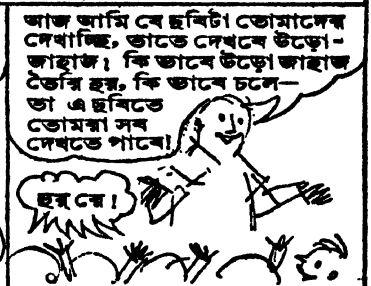 আজ আমি যে ছবিটা তোমাদের
দেখাচ্ছি, তাতে দেখবে উড়ো-
জাহাজ; কি ভাবে উড়ো জাহাজ
তৈরি হয়, কি ভাবে চলে—
তা এ ছবিতে
তোমরা সব
দেখতে পাবে!
হুর্ রে!